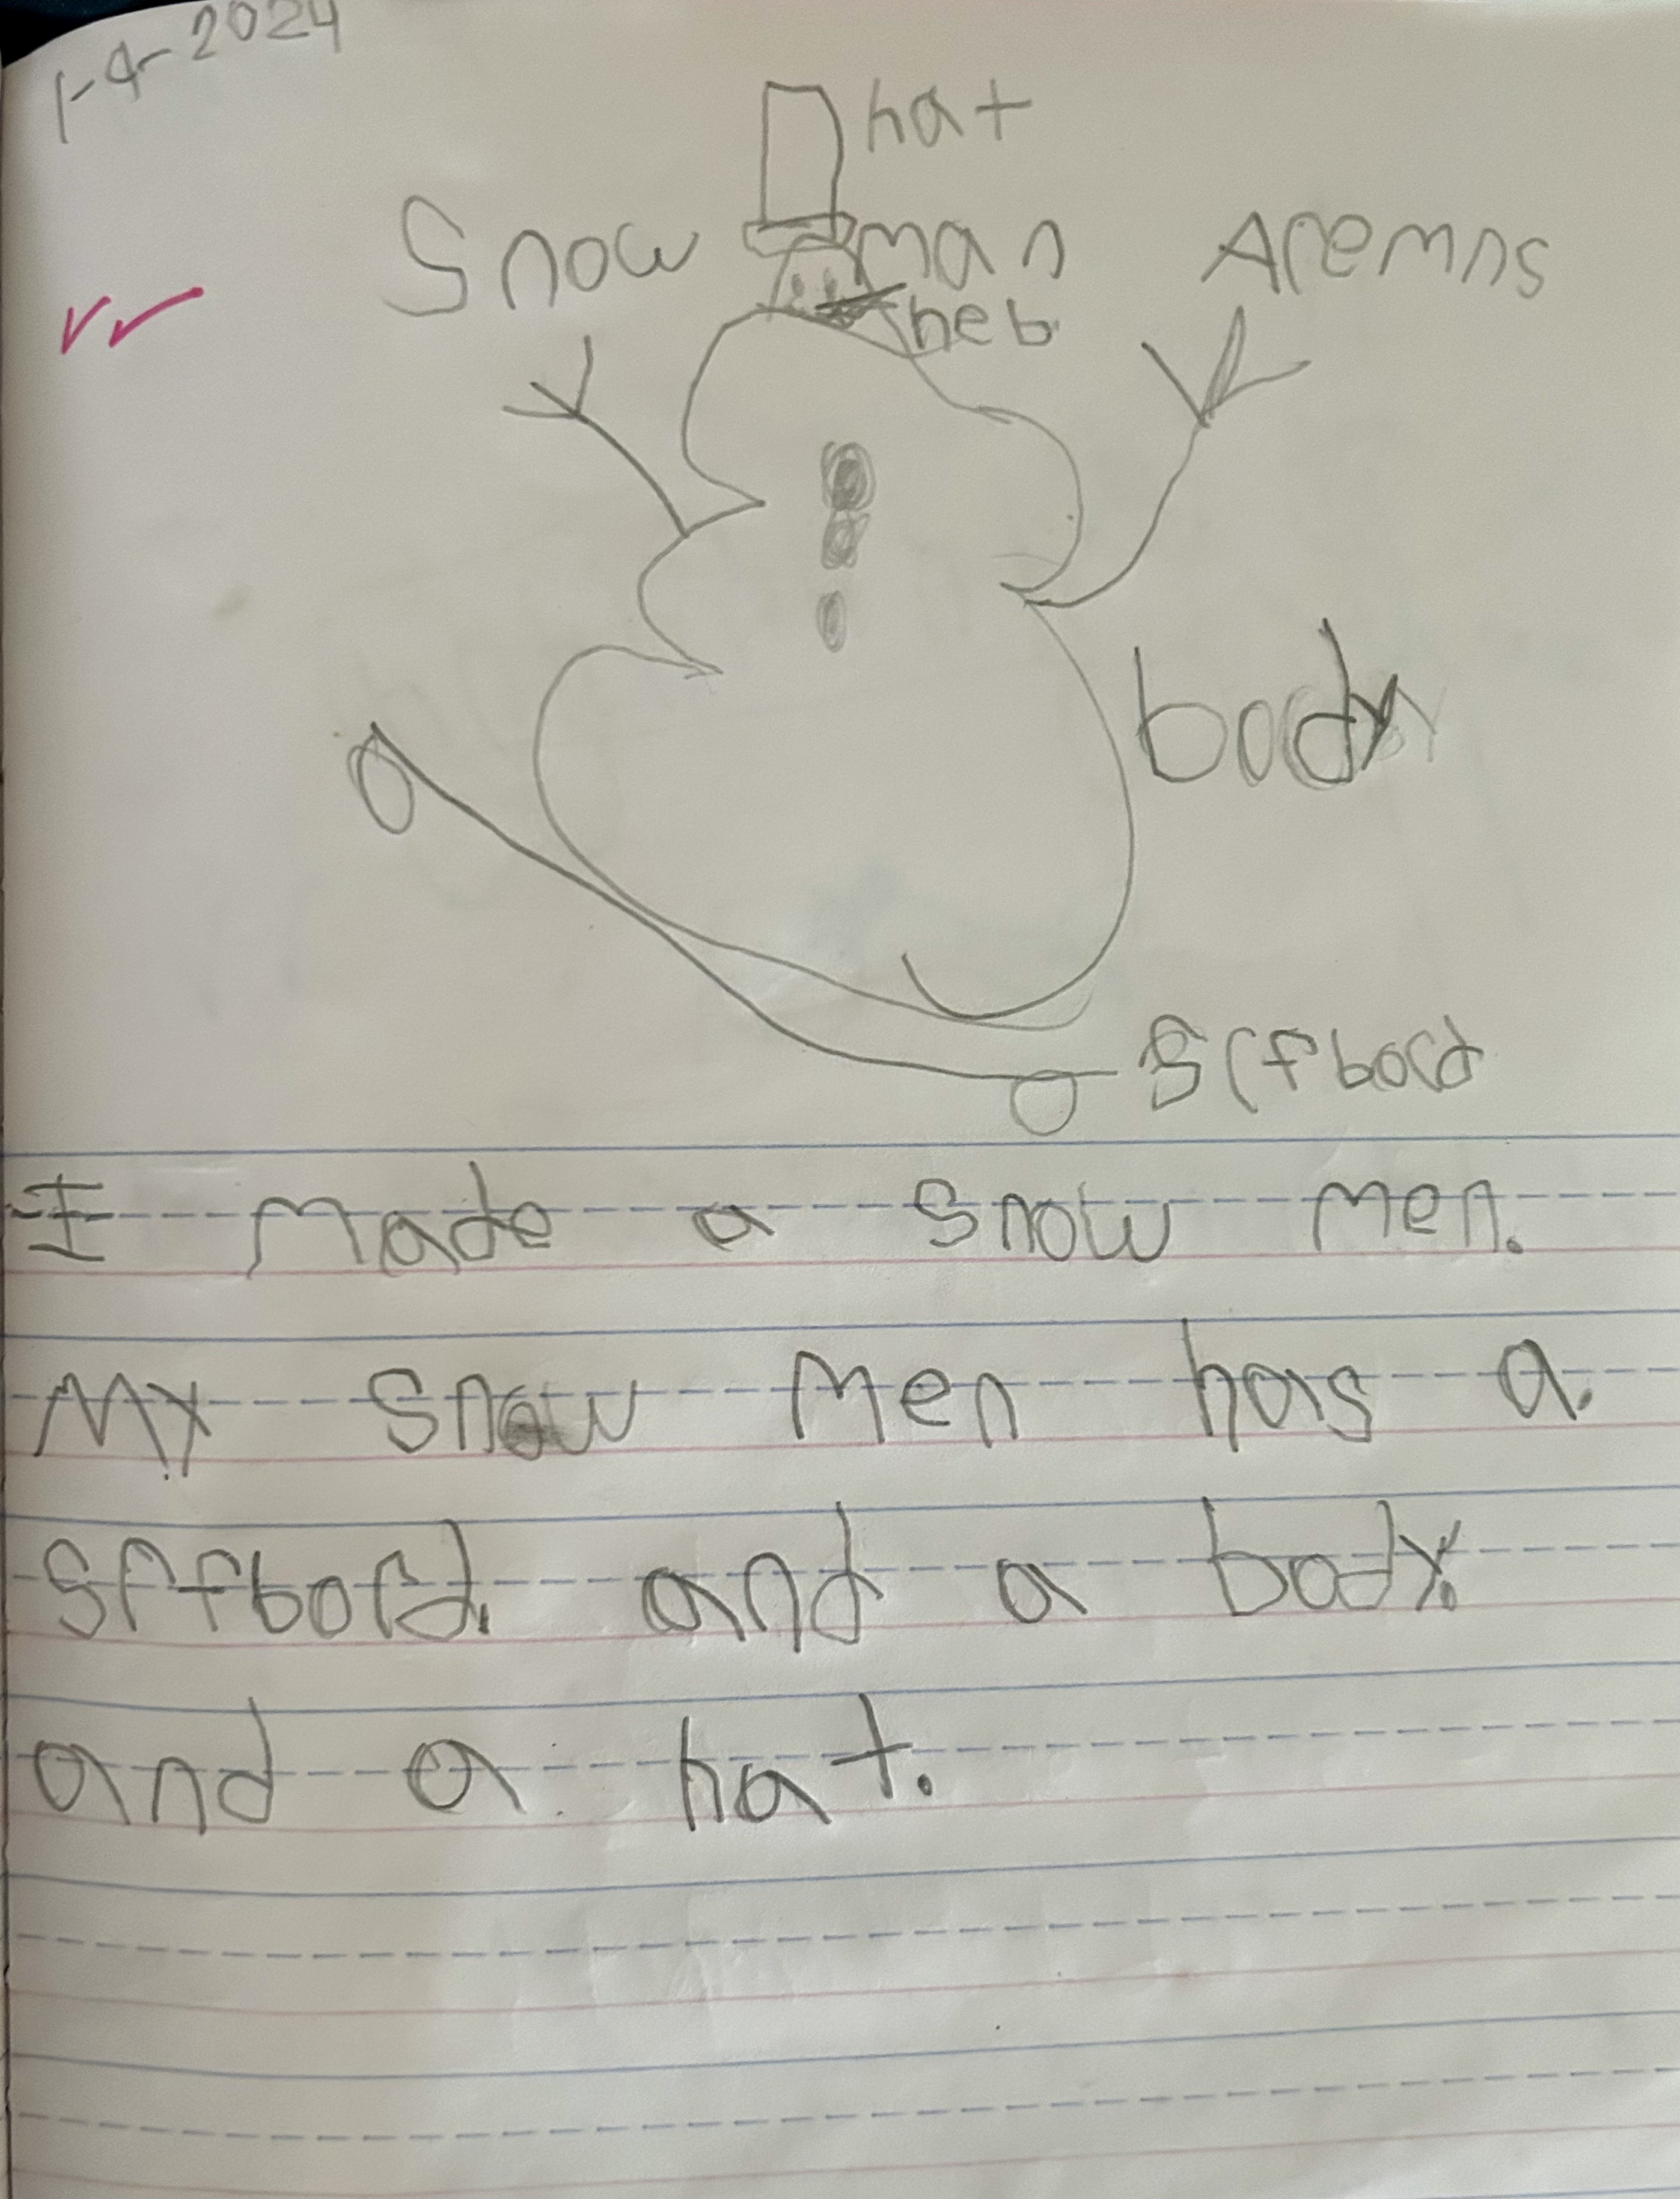 1-4-2024
hat
Snow man Aremns
heb
body
Srfbord
I made a snow men.
My snow men has a.
Srfbord. and a body.
and a hat.